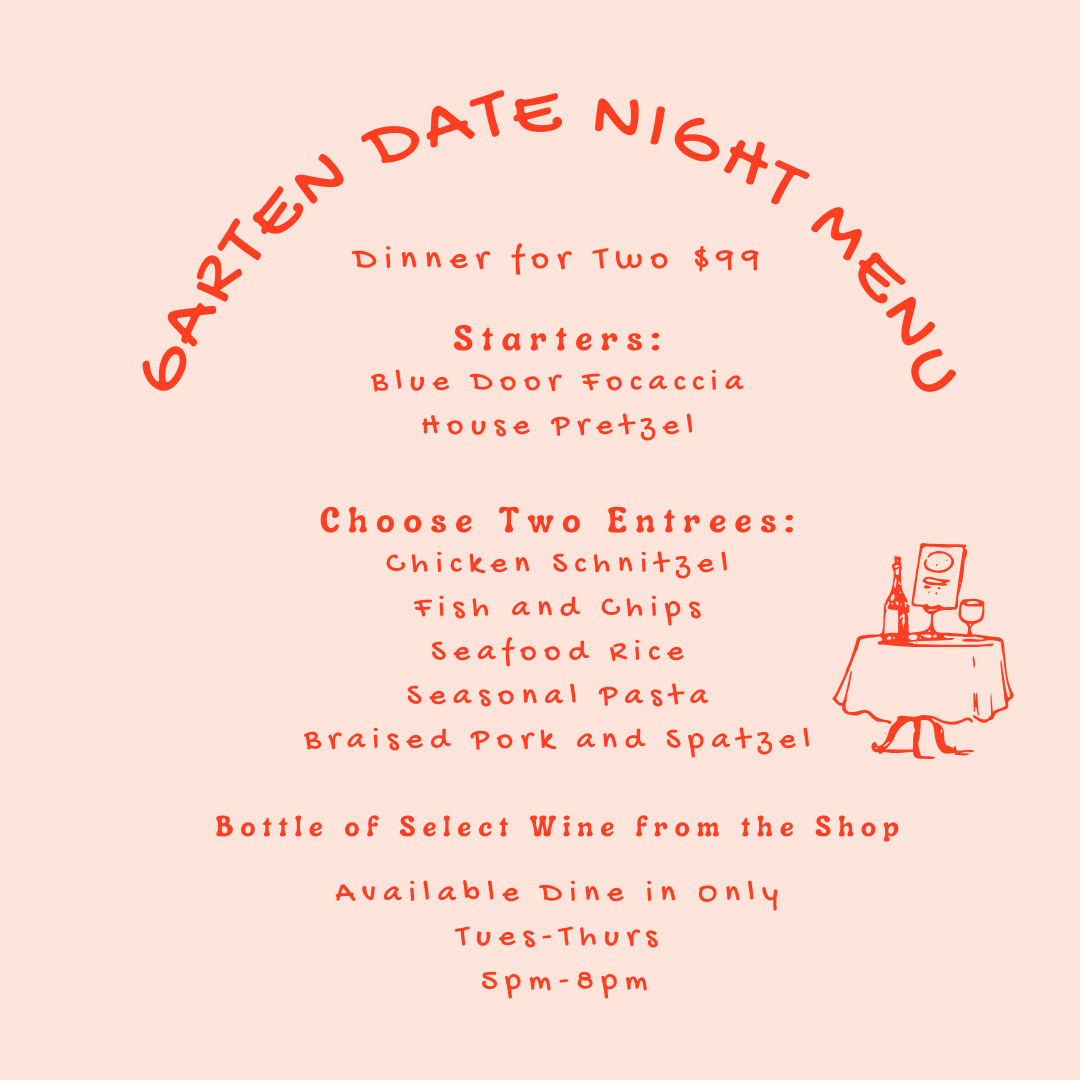 GARTEN DATE NIGHT MENU
Dinner for Two $99
Starters:
Blue Door Focaccia
House Pretzel
Choose Two Entrees:
Chicken Schnitzel
Fish and Chips
Seafood Rice
Seasonal Pasta
Braised Pork and Spatzel
Bottle of Select Wine from the Shop
Available Dine in Only
Tues-Thurs
5pm-8pm